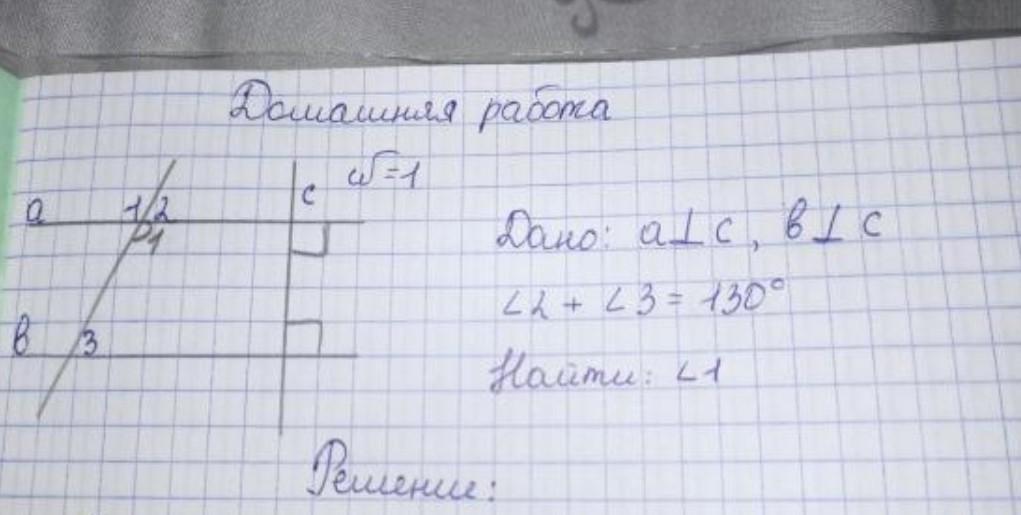 Домашняя работа
а 1 2 1 с
в 3
Дано: а⊥с, в⊥с
∠2 + ∠3 = 130°
Найти: ∠1
Решение: